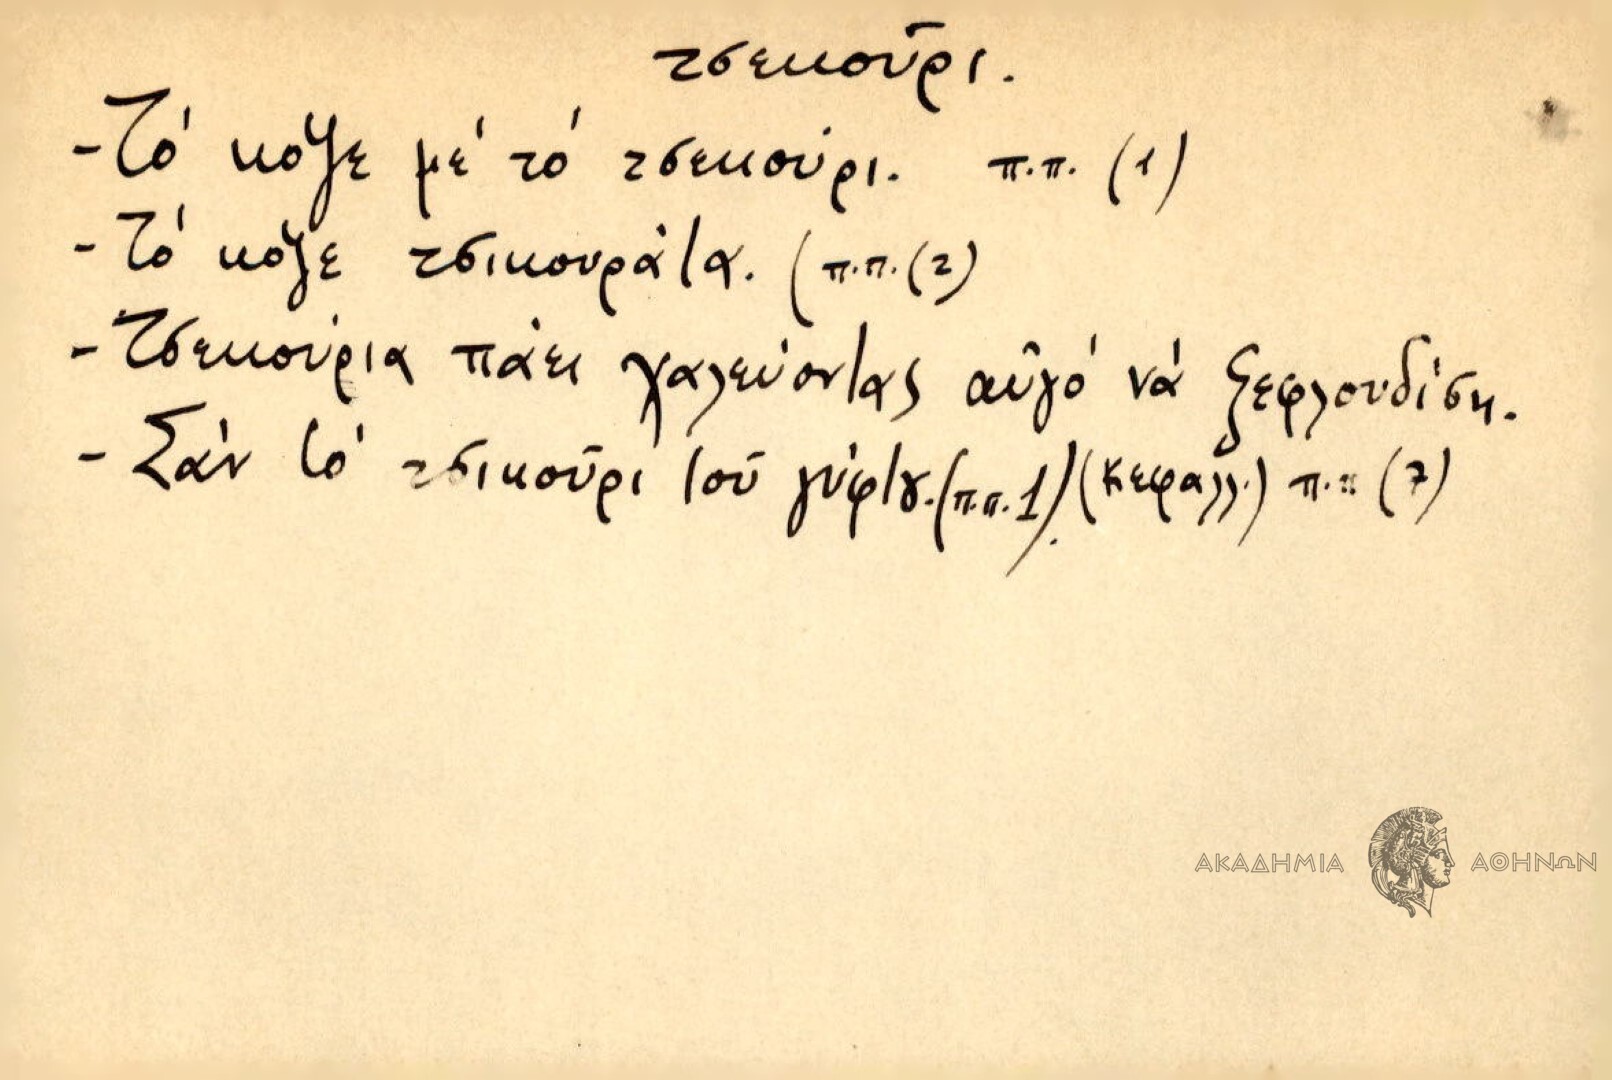 τσεκοῦρι.
- Τό κόψε μέ τό τσεκούρι. π.π. (1)
- Τό κόψε τσικουράτα. (π.π. (2)
- Τσεκούρια πάει γαλεύοντας αὐγό νά ξεφλουδίση.
- Σάν τό τσικοῦρι τοῦ γύφτου. (π.π. 1). (Κεφαλλ.) π.π (7)
ΑΚΑΔΗΜΙΑ ΑΘΗΝΩΝ